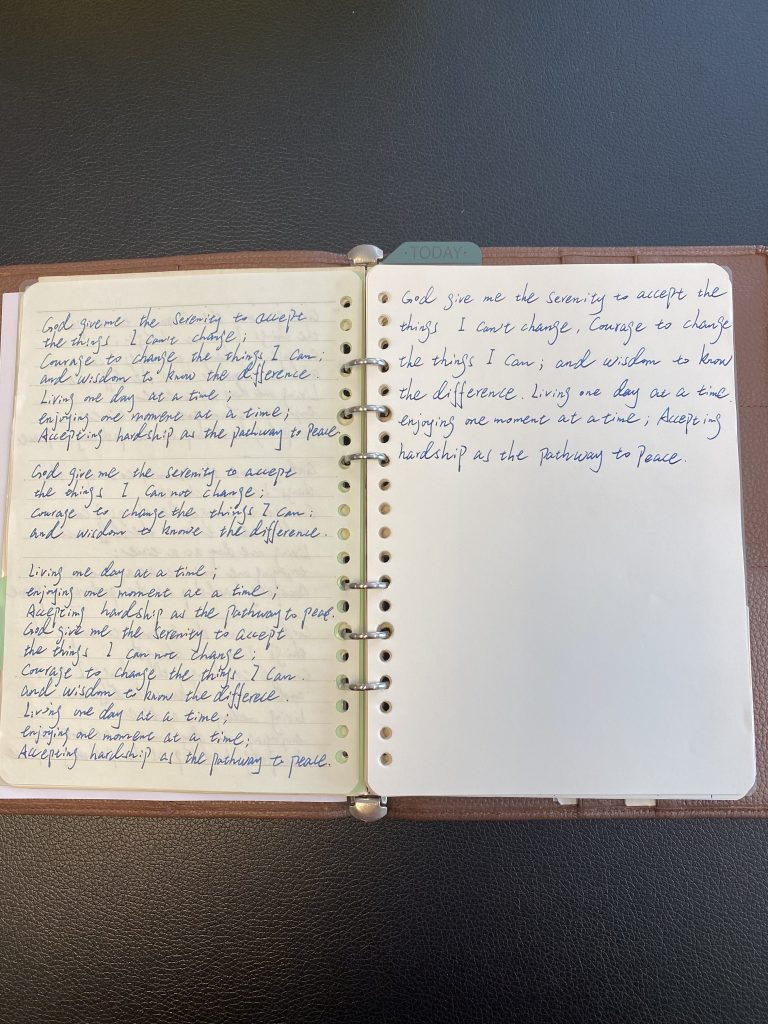 God give me the serenity to accept
the things I can't change;
Courage to change the things I can;
and wisdom to know the difference.
Living one day at a time;
enjoying one moment at a time;
Accepting hardship as the pathway to peace.
God give me the serenity to accept
the things I can not change;
courage to change the things I can;
and wisdom to knowe the difference.
Living one day at a time;
enjoying one moment at a time;
Accepting hardship as the pathway to peace.
God give me the serenity to accept
the things I can not change;
Courage to change the things I can.
and wisdom to know the differece.
Living one day at a time;
enjoying one moment at a time;
Accepting hardship as the pathway to peace.
·TODAY·
God give me the serenity to accept the
things I can't change, Courage to change
the things I can; and wisdom to know
the difference. Living one day at a time.
enjoying one moment at a time; Accepting
hardship as the pathway to peace.